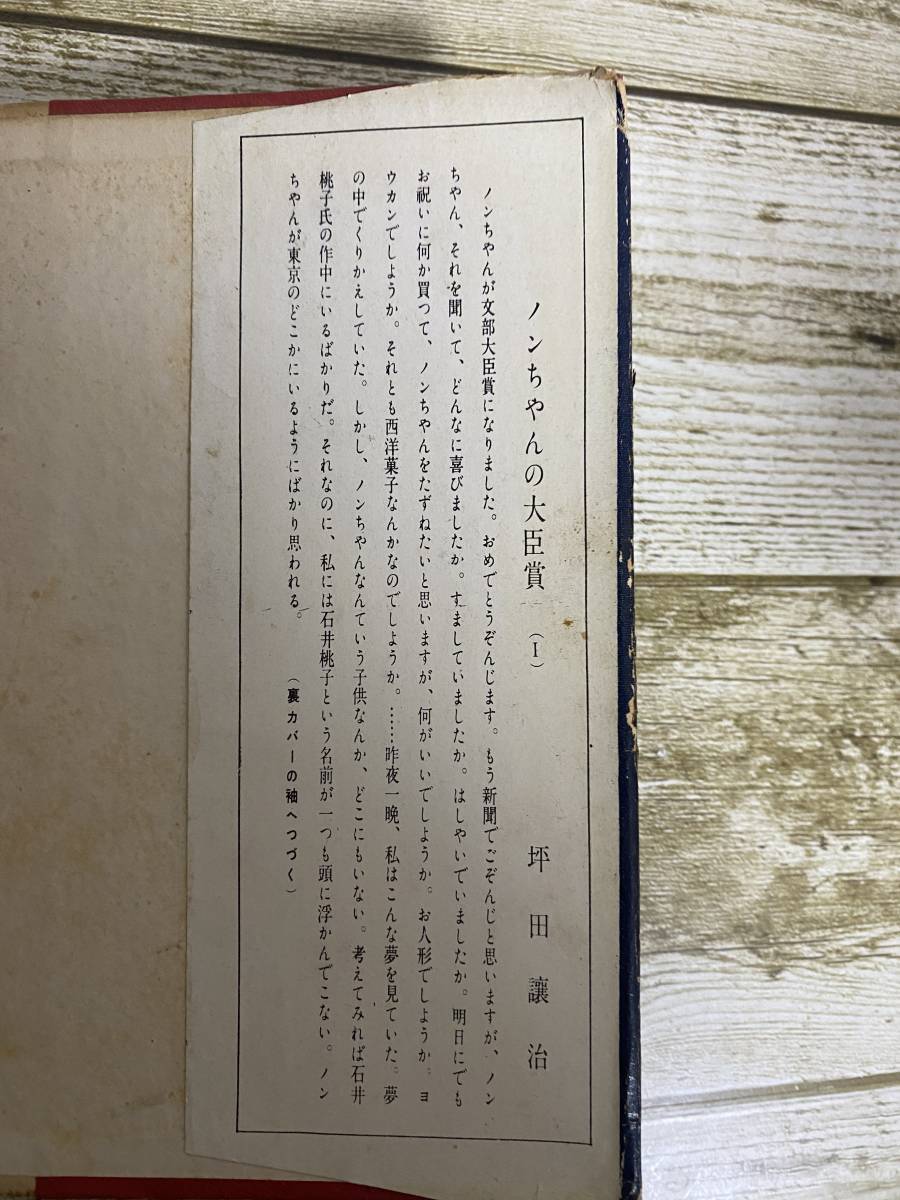 ノンちやんの大臣賞 (I)
坪田譲治
ノンちやんが文部大臣賞になりました。おめでとうぞんじます。もう新聞でごぞんじと思いますが、ノン
ちやん、それを聞いて、どんなに喜びましたか。すましていましたか。はしやいでいましたか。明日にでも
お祝いに何か買つて、ノンちやんをたずねたいと思いますが、何がいいでしようか。お人形でしようか。ヨ
ウカンでしようか。それとも西洋菓子なんかなのでしようか。……昨夜一晩、私はこんな夢を見ていた。夢
の中でくりかえしていた。しかし、ノンちやんなんていう子供なんか、どこにもいない。考えてみれば石井
桃子氏の作中にいるばかりだ。それなのに、私には石井桃子という名前が一つも頭に浮かんでこない。ノン
ちやんが東京のどこかにいるようにばかり思われる。
(裏カバーの袖へつづく)